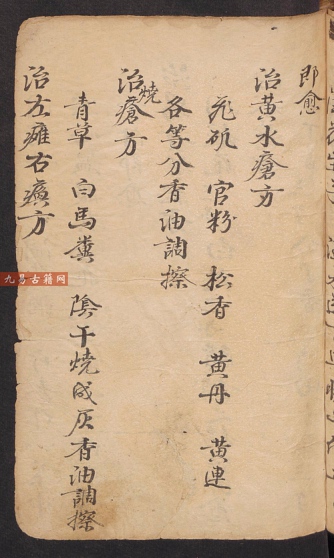 即愈
治黃水瘡方
枯矾 官粉 松香 黃丹 黃連
各等分香油調擦
治燒瘡方
青草 白馬糞 陰干燒成灰香油調擦
治左癱右瘓方
九易古籍网